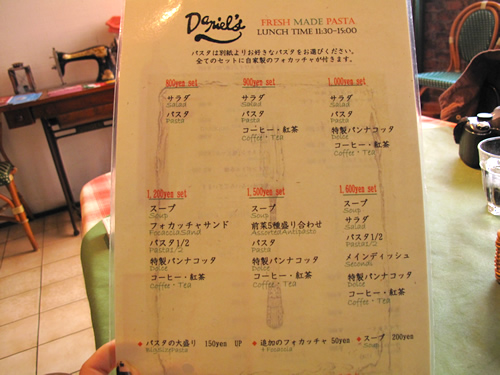 Daniel's
FRESH MADE PASTA
LUNCH TIME 11:30-15:00
パスタは別紙よりお好きなパスタをお選びください。
全てのセットに自家製のフォカッチャが付きます。
800yen set
サラダ
Salad
パスタ
Pasta
900yen set
サラダ
Salad
パスタ
Pasta
コーヒー・紅茶
Coffee・Tea
1,000yen set
サラダ
Salad
パスタ
Pasta
特製パンナコッタ
Dolce
コーヒー・紅茶
Coffee・Tea
1,200yen set
スープ
Soup
フォカッチャサンド
FocacciaSand
パスタ1/2
Pasta1/2
特製パンナコッタ
Dolce
コーヒー・紅茶
Coffee・Tea
1,500yen set
スープ
Soup
前菜5種盛り合わせ
AssortedAntipasto
パスタ
Pasta
特製パンナコッタ
Dolce
コーヒー・紅茶
Coffee・Tea
1,600yen set
スープ
Soup
サラダ
Salad
パスタ1/2
Pasta1/2
メインディッシュ
Secondi
特製パンナコッタ
Dolce
コーヒー・紅茶
Coffee・Tea
◆パスタの大盛り 150yen UP ◆追加のフォカッチャ 50yen ◆スープ 200yen
Soup